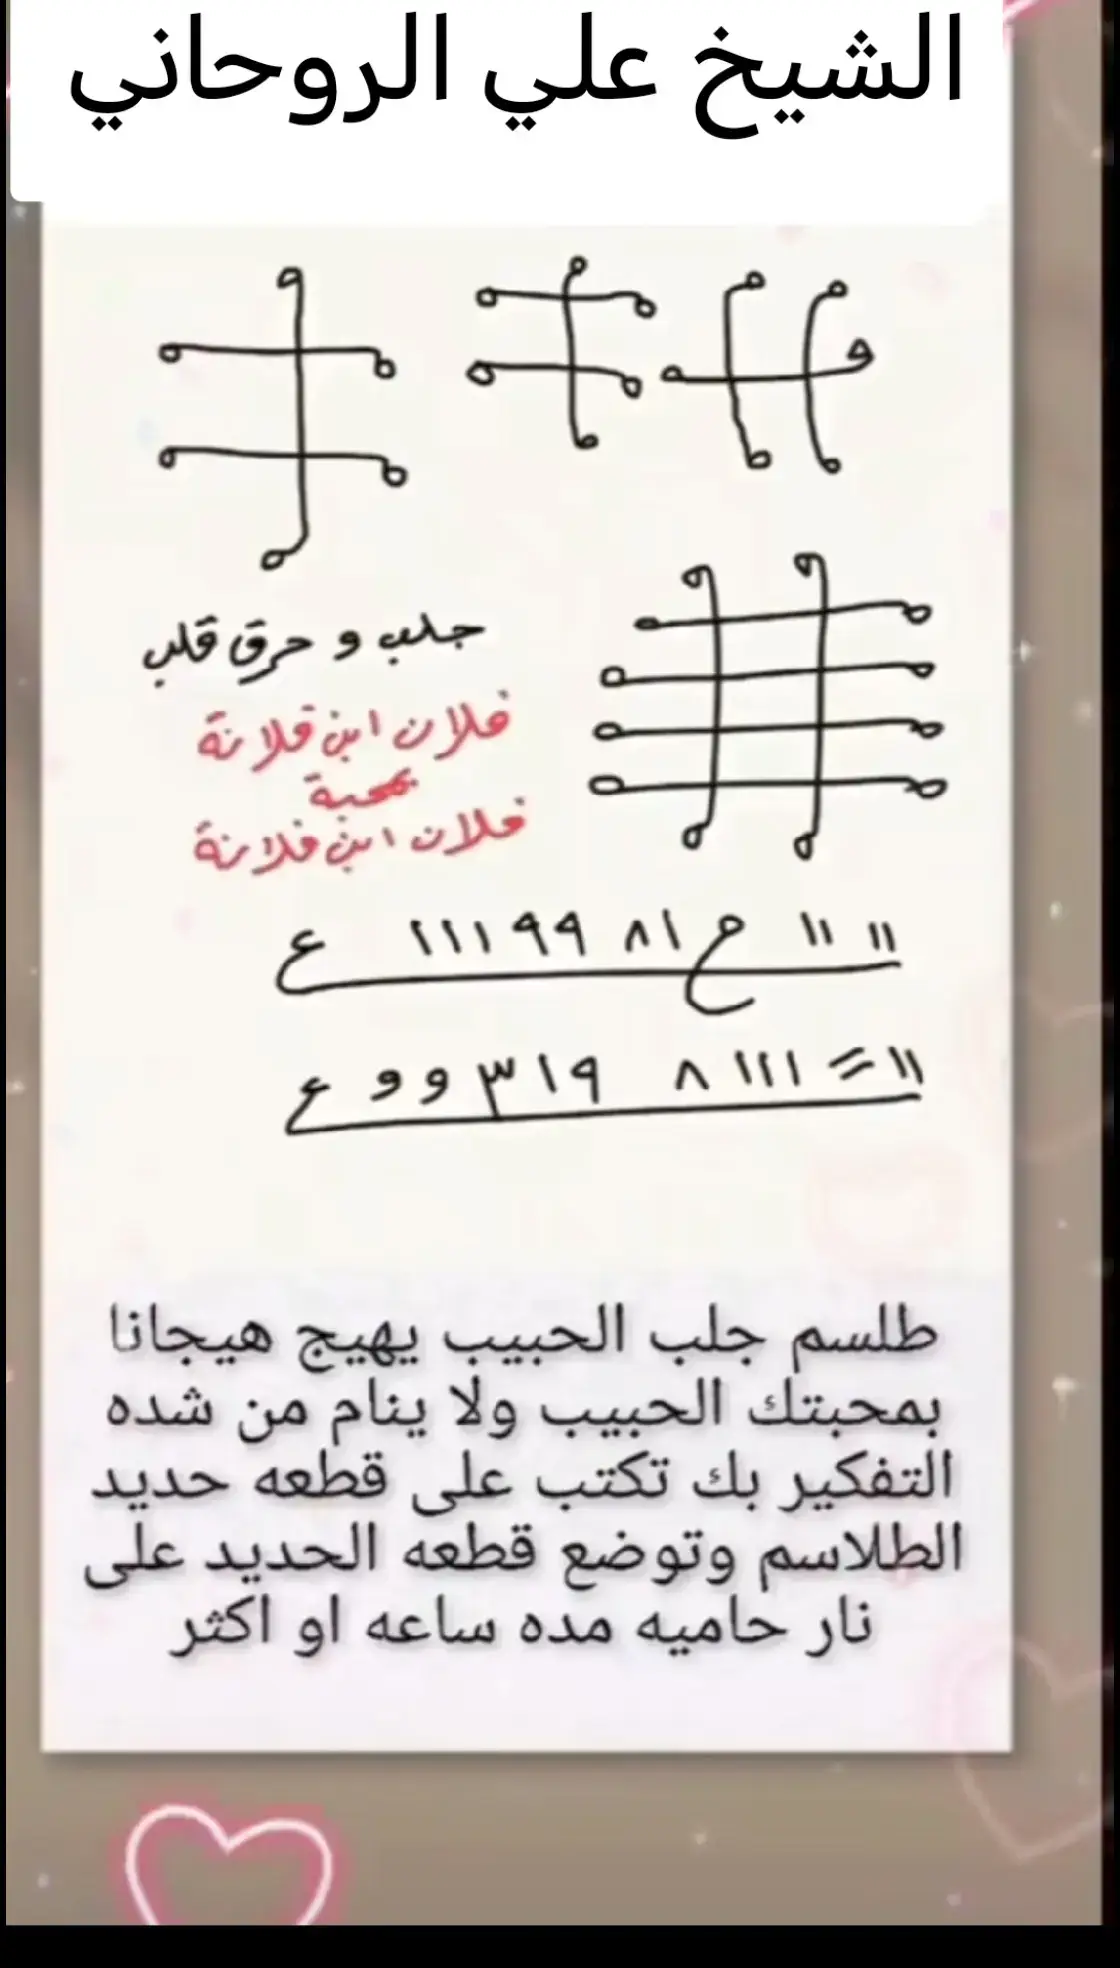 الشيخ علي الروحاني
جلب و حرق قلب
فلان ابن فلانة
بمحبة
فلان ابن فلانة
١١ ١١ ح ٨١ ٩٩ ١١١ ع
١١ = ١١١ ٨ ٣١٩ و و ع
طلسم جلب الحبيب يهيج هيجانا
بمحبتك الحبيب ولا ينام من شده
التفكير بك تكتب على قطعه حديد
الطلاسم وتوضع قطعه الحديد على
نار حاميه مده ساعه او اكثر